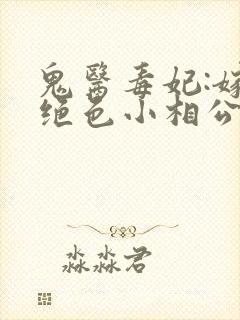 鬼醫毒妃:嫁
绝色小相公
淼淼君